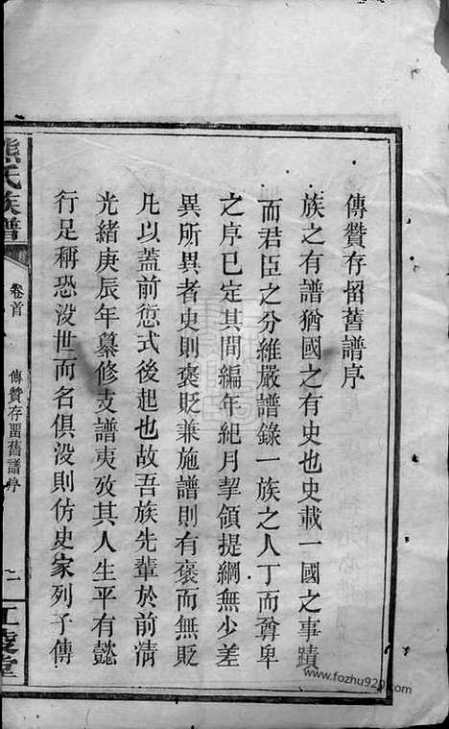 傳贊存留舊譜序
族之有譜猶國之有史也史載一國之事蹟
而君臣之分維嚴譜錄一族之人丁而尊卑
之序已定其間編年紀月挈領提綱無少差
異所異者史則褒貶兼施譜則有褒而無貶
凡以蓋前愆式後起也故吾族先輩於前清
光緒庚辰年纂修支譜夷攷其人生平有懿
行足稱恐没世而名俱没則仿史家列子傳
熊氏族譜
卷首
傳贊存留舊譜序
二
江陵堂
www.fozhu920.com